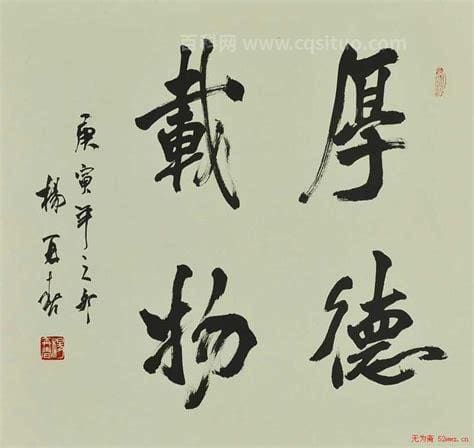 厚德
載物
庚寅年之
楊
百科网 www.cqsituo.com
无为斋 52wwz.cn